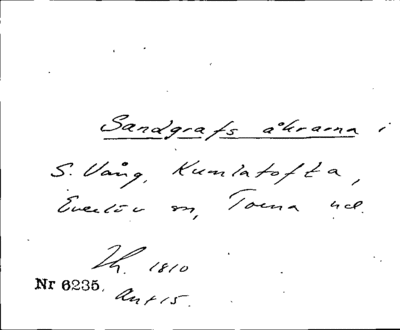 Sandgrafs åkrarna i
S. Vång, Kumlatofta,
Everlöv sn, Torna hd.
Th. 1810
Nr 6235.
Ant 15.